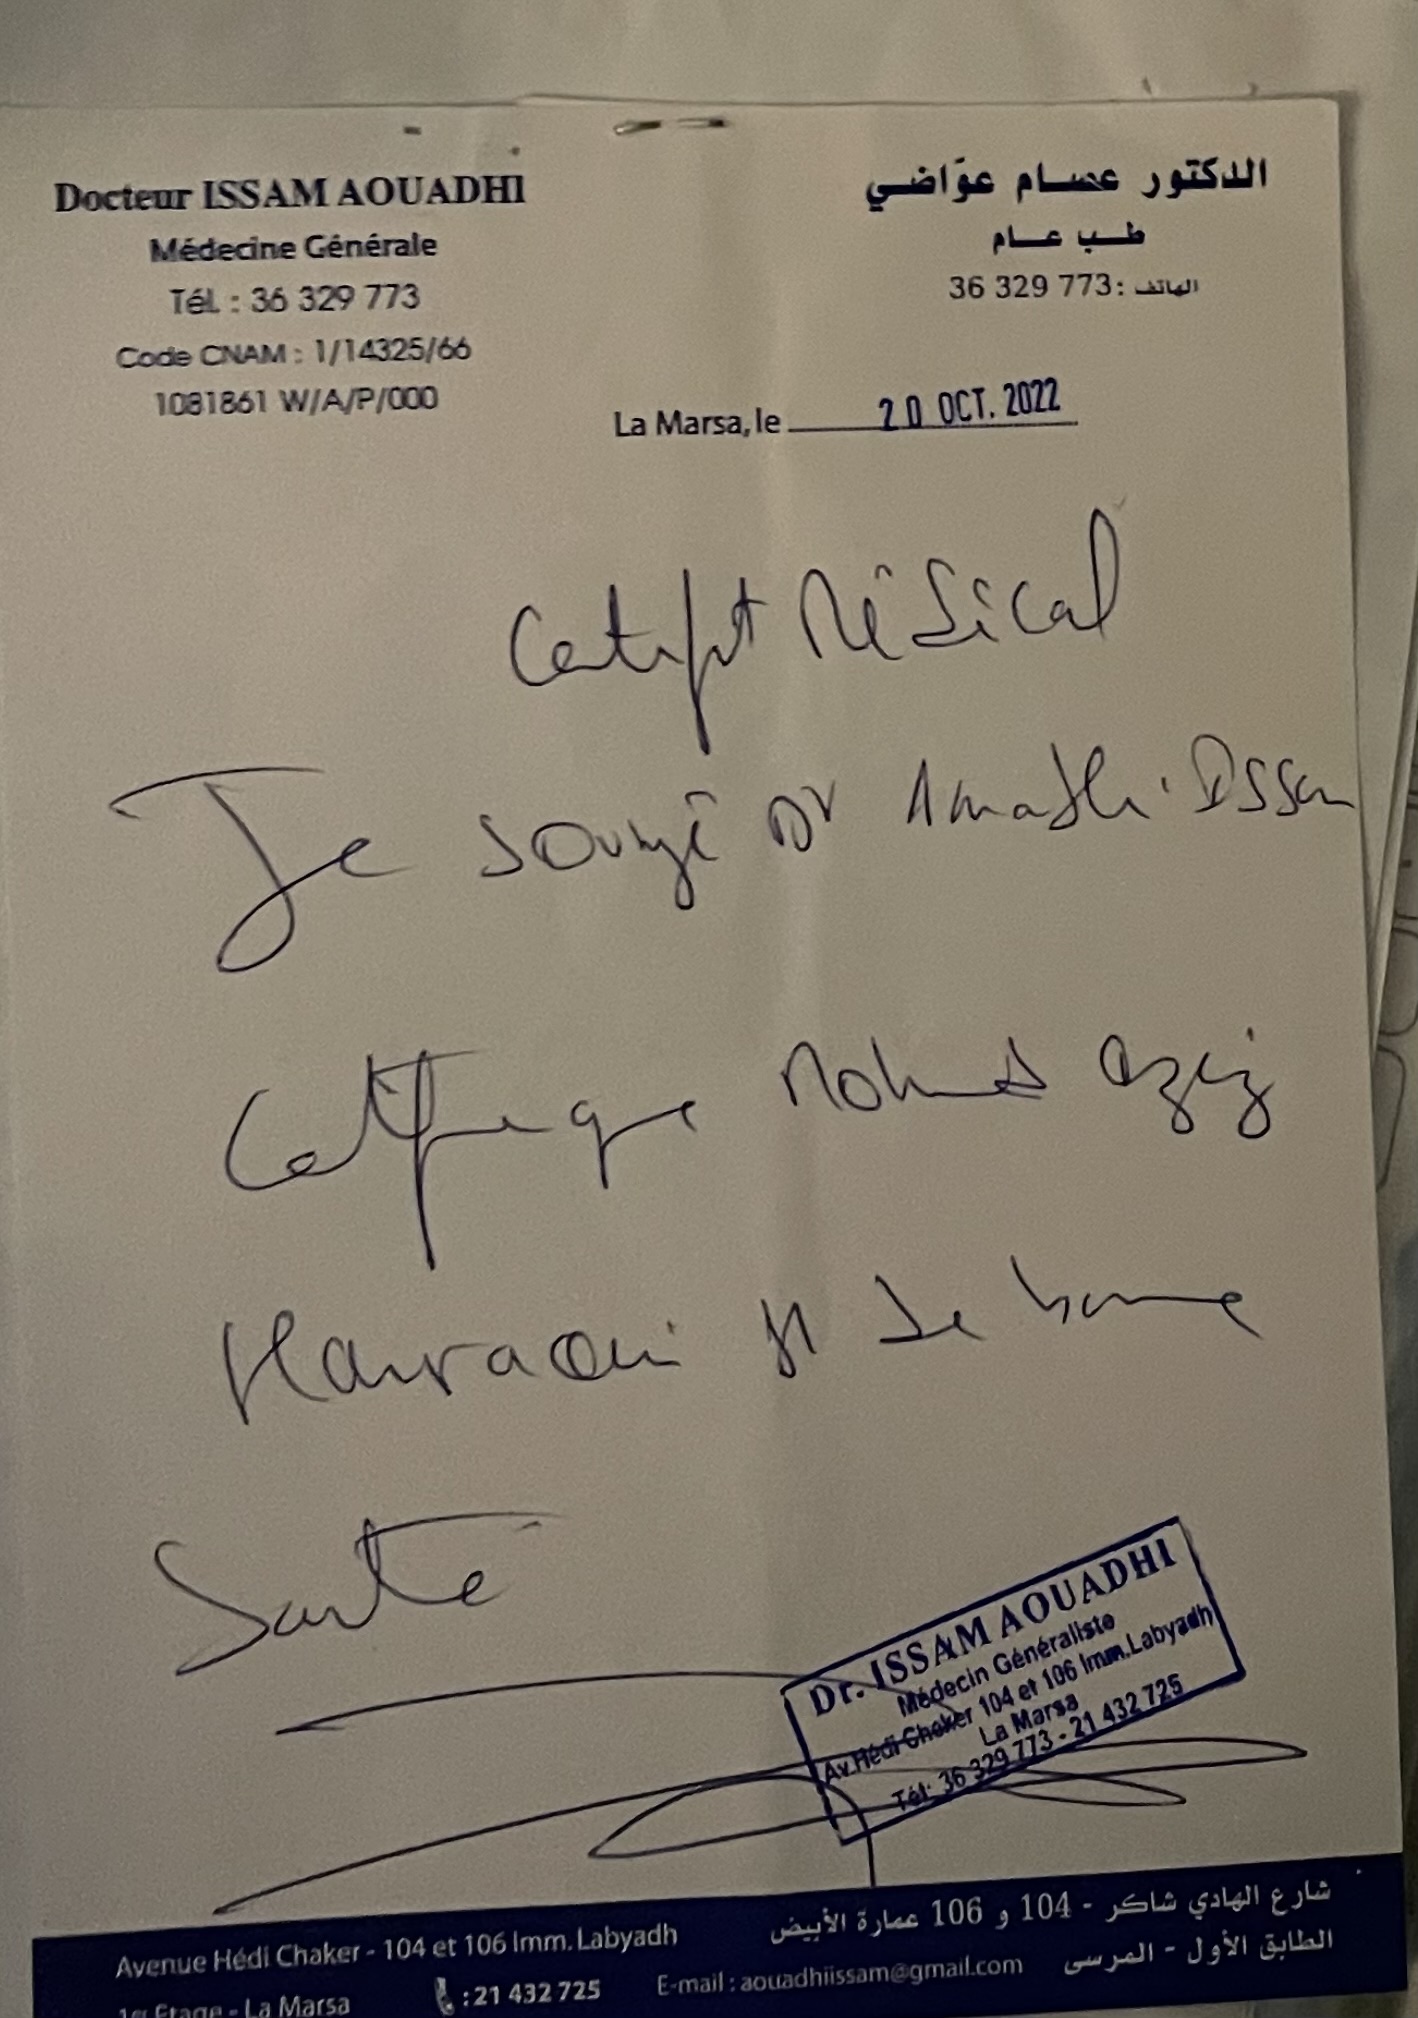 Docteur ISSAM AOUADHI
Médecine Générale
Tél. : 36 329 773
Code CNAM : 1/14325/66
1081861 W/A/P/000
الدكتور عصام عوّاضي
طب عام
الهاتف : 36 329 773
La Marsa, le 20 OCT. 2022
Certificat Médical
Je soussigné Dr Aouadhi Issam
Certifie que Mohamed Aziz
est de bonne
Santé
Dr. ISSAM AOUADHI
Médecin Généraliste
Av.Hédi Chaker 104 et 106 Imm.Labyadh
La Marsa
Tél: 36 329 773 - 21 432 725
Avenue Hédi Chaker - 104 et 106 Imm. Labyadh
1er Etage - La Marsa
: 21 432 725
E-mail : aouadhiissam@gmail.com
شارع الهادي شاكر - 104 و 106 عمارة الأبيض
الطابق الأول - المرسى